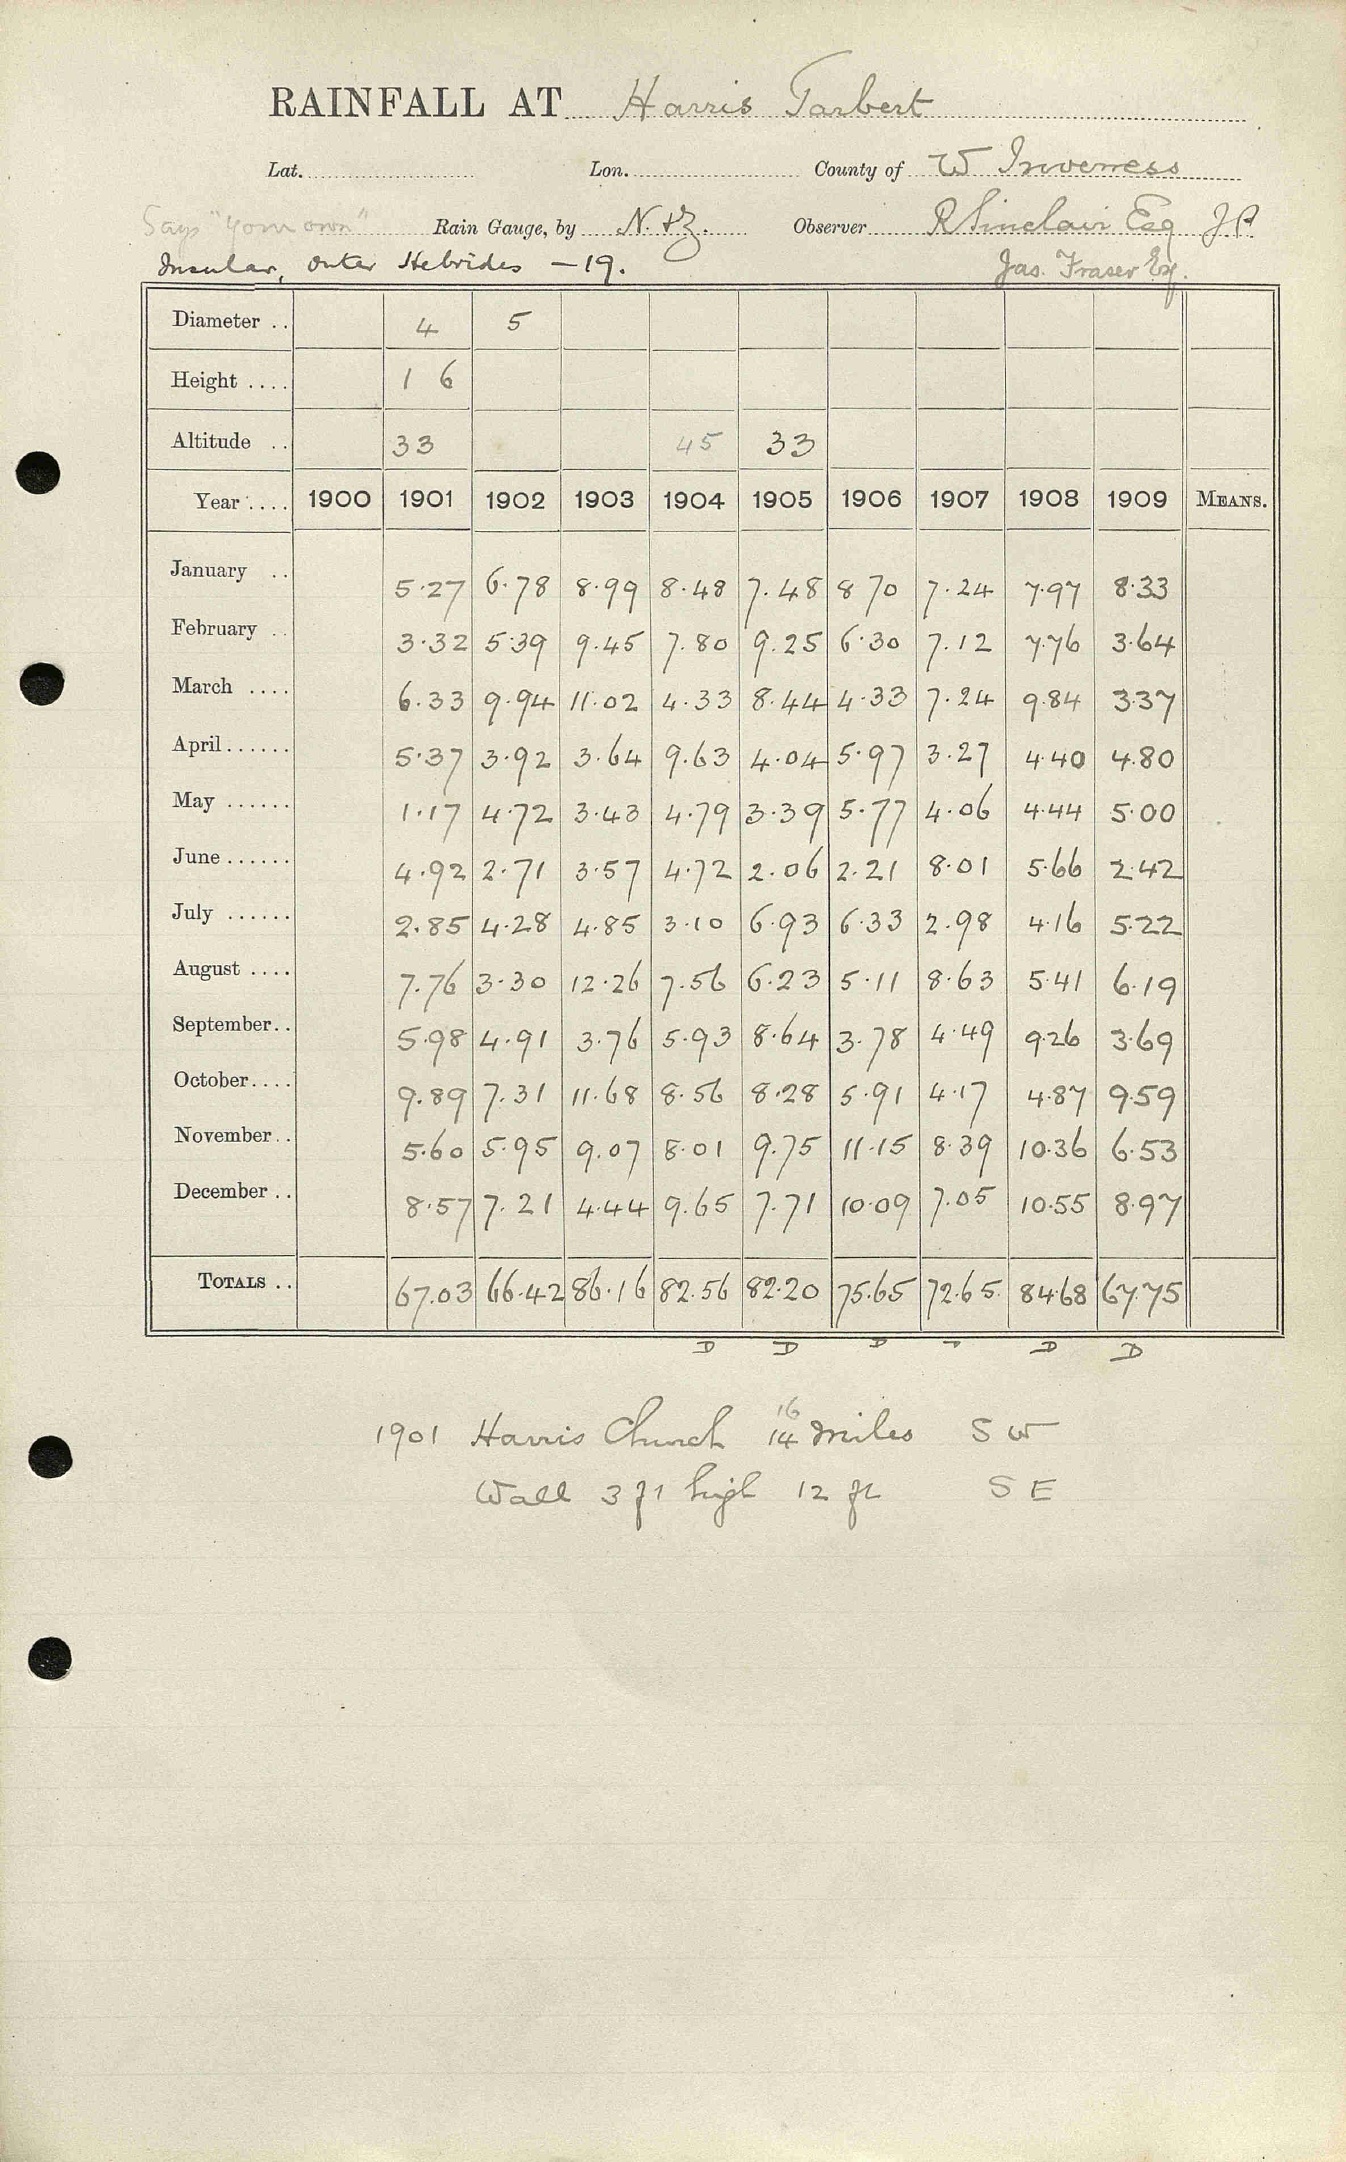 RAINFALL AT Harris Tarbert
Lat. Lon. County of W Inverness
Says "your own" Rain Gauge, by N. & Z. Observer R Sinclair Esq J P.
Insular, Outer Hebrides — 19. Jas. Fraser Esq.
Diameter .. 4 5
Height .... 1 6
Altitude .. 33 45 33
Year .... 1900 1901 1902 1903 1904 1905 1906 1907 1908 1909 MEANS.
January .. 5.27 6.78 8.99 8.48 7.48 8 70 7.24 7.97 8.33
February .. 3.32 5.39 9.45 7.80 9.25 6.30 7.12 7.76 3.64
March .... 6.33 9.94 11.02 4.33 8.44 4.33 7.24 9.84 3.37
April...... 5.37 3.92 3.64 9.63 4.04 5.97 3.27 4.40 4.80
May ...... 1.17 4.72 3.43 4.79 3.39 5.77 4.06 4.44 5.00
June ...... 4.92 2.71 3.57 4.72 2.06 2.21 8.01 5.66 2.42
July ...... 2.85 4.28 4.85 3.10 6.93 6.33 2.98 4.16 5.22
August .... 7.76 3.30 12.26 7.56 6.23 5.11 8.63 5.41 6.19
September.. 5.98 4.91 3.76 5.93 8.64 3.78 4.49 9.26 3.69
October.... 9.89 7.31 11.68 8.56 8.28 5.91 4.17 4.87 9.59
November.. 5.60 5.95 9.07 8.01 9.75 11.15 8.39 10.36 6.53
December .. 8.57 7.21 4.44 9.65 7.71 10.09 7.05 10.55 8.97
TOTALS .. 67.03 66.42 86.16 82.56 82.20 75.65 72.65. 84.68 67.75
D D D D D
16
1901 Harris Church 14 miles S W
Wall 3 ft high 12 ft S E